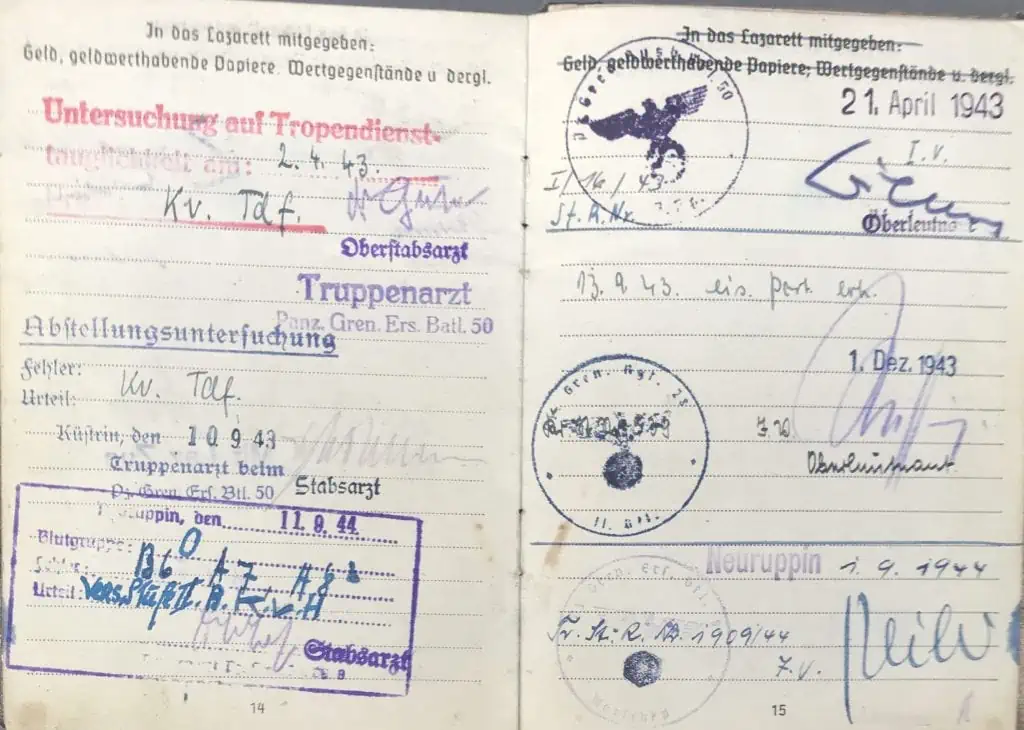 In das Lazarett mitgegeben:
Geld, geldwerthabende Papiere. Wertgegenstände u dergl.
Untersuchung auf Tropendienst-
tauglichkeit am: 2.4.43.
Kv. Tdf.
Oberstabsarzt
Truppenarzt
Panz. Gren. Ers. Batl. 50
Abstellungsuntersuchung
Fehler:
Kv. Tdf.
Urteil:
Küstrin, den 10 9 43
Truppenarzt beim
Pz. Gren. Ers. Btl. 50 Stabsarzt
Neuruppin, den 11. 9. 44
Blutgruppe: O
Fehler: B6 A7, A8
Urteil: Vers. Stufe II
Stabsarzt
14
In das Lazarett mitgegeben:
Geld, geldwerthabende Papiere; Wertgegenstände u. dergl.
21. April 1943
I.V.
I/16/43
St. R. Nr.
Oberleutnant
13. 9. 43. eis. Port. erh.
1. Dez. 1943
Gren. Rgt.
Oberleutnant
Neuruppin 1. 9. 1944
Tr. St. R. Nr. 1909/44
15